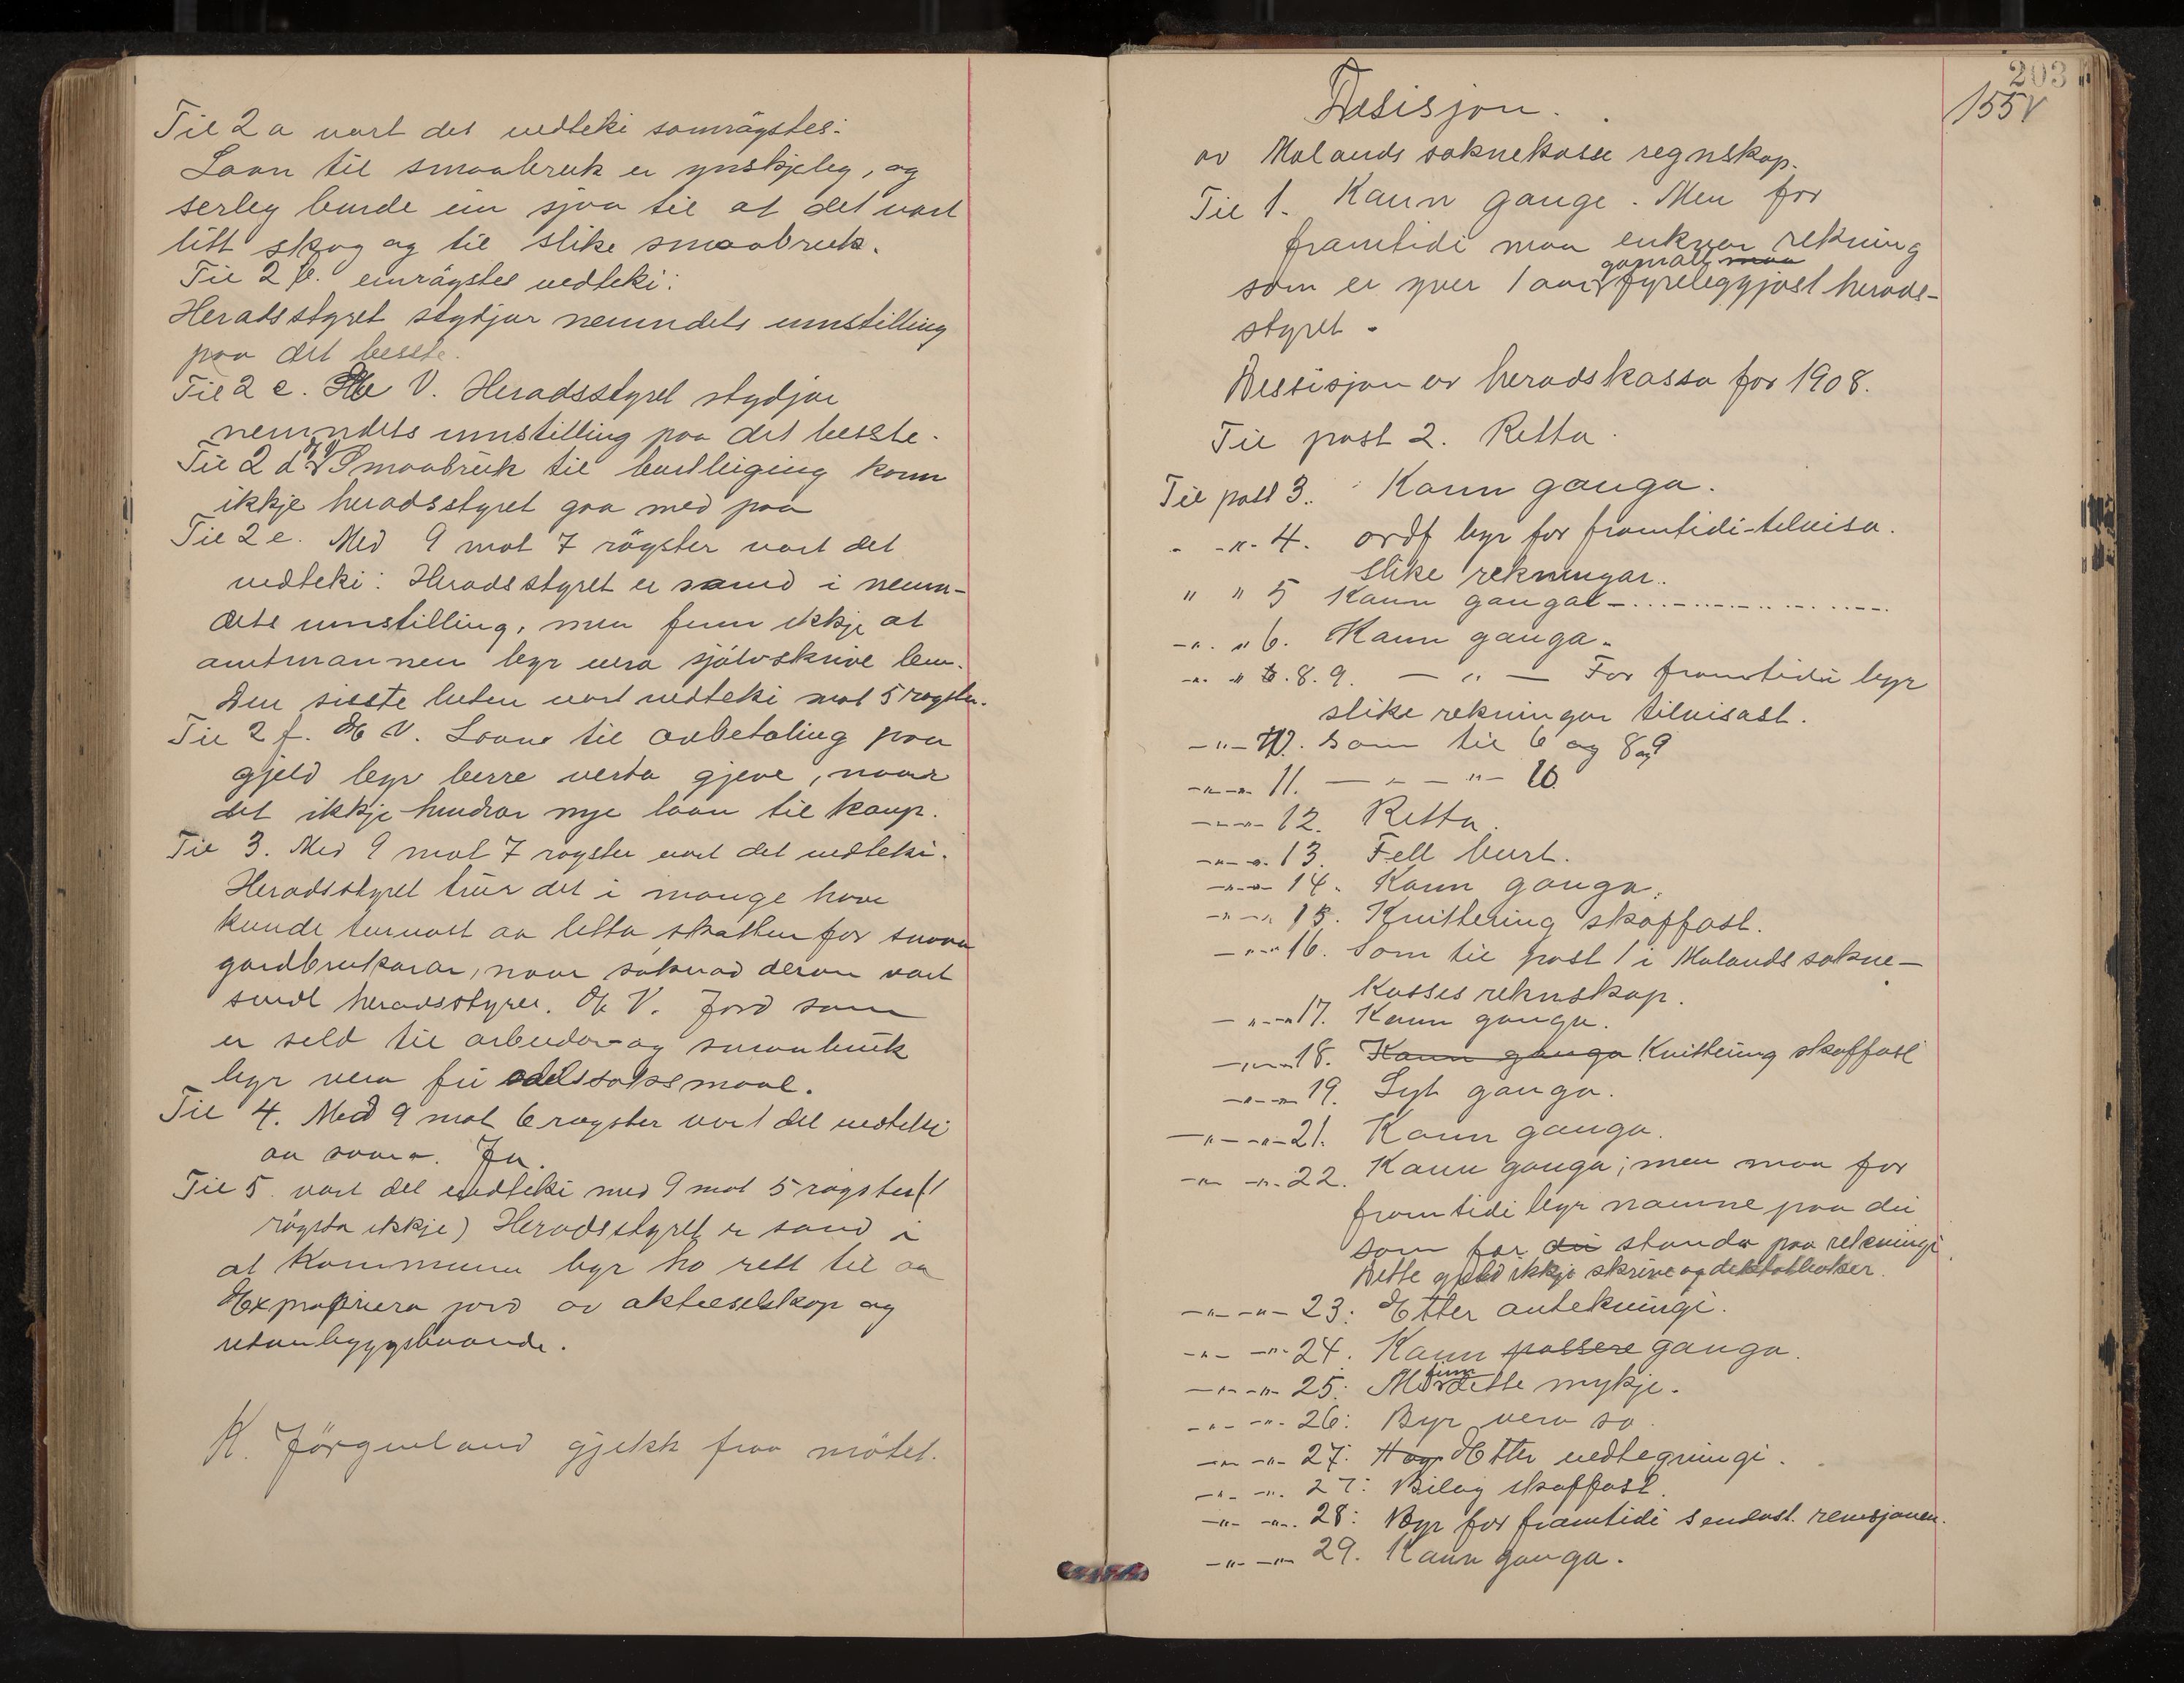 Til 2 a vart det vedteki samrøystes:
Laan til smaabruk er ynskjeleg, og
serleg burde ein sjaa til at det vart
litt skog og til slike smaabruk.
Til 2 b. einrøystes vedteki:
Heradsstyret stydjar nemndets innstilling
paa det beste.
Til 2 c. E V. Heradsstyret stydjar
nemndets innstilling paa det beste.
Til 2 d. E V Smaabruk til burtleiging kann
ikkje heradsstyret gaa med paa
Til 2 e. Med 9 mot 7 røyster vart det
vedteki: Heradsstyret er samd i nemn-
dets innstilling, men finn ikkje at
amtmannen byr vera sjølvskrive lem.
Den siste luten vart vedteki mot 5 røyster.
Til 2 f. E V. Laan til avbetaling paa
gjeld byr berre verta gjeve, naar
det ikkje hindrar nye laan til kaup.
Til 3. Med 9 mot 7 røyster vart det vedteki.
Heradsstyret trur det i mange høve
kunde turvast aa letta skatten for smaa
gardbrukarar, naar søknad derom vart
sendt heradsstyret. E V. Jord som
er seld til arbeidar- og smaabruk
byr vera fri odelssøksmaal.
Til 4. Med 9 mot 6 røyster vart det vedteki
aa svara. Ja.
Til 5. vart det vedteki med 9 mot 5 røyster (1
røysta ikkje) Heradsstyret er samd i
at kommunen byr ha rett til aa
Expropriera jord av aktieselskap og
utanbyggsbuande.
K. Jørgneland gjekk fraa møtet.
203
155 V
Desisjon.
av Molands soknekasse regnskap.
Til 1. Kann gange. Men for
framtidi maa enkvar rekning
gamall maa
som er yver 1 aar fyreleggjast herads-
styret.
Dessisjon av heradskassa for 1908.
Til post 2. Retta.
Til post 3. Kann ganga.
- -"- 4. ordf byr for framtidi tilvisa
slike rekningar.
" " 5 Kann ganga
-". " 6. Kann ganga.
-". " 8. 9. - " - For framtidi byr
slike rekningar tilvisast.
-"- 10. som til 6 og 8 og 9
-"-"- 11. - " - "- 10
-"-"- 12. Retta.
-"-"- 13. Fell burt.
-"-"- 14. Kann ganga.
-"-"- 15. Kvittering skaffast.
-"-"- 16. Som til post 1 i Molands sokne-
kasses reknskap.
-"-"- 17. Kann ganga.
-"-"- 18. Kann ganga Kvittering skaffast
-"-"- 19. Lyt ganga.
-"-"- 21. Kann ganga.
-"-"- 22. Kann ganga; men maa for
framtidi byr namne paa dei
som før dei standa paa rekningi.
Dette gjeld ikkje skrive og
-"-"- 23: Etter antekningi.
-"-"- 24. Kann passere ganga.
finn
-"-"- 25: M dette mykje.
-"-"- 26: Byr vera so.
-"-"- 27: Etter vedtegningi.
-"-"- 27: Bilag skaffast.
-"-"- 28: Byr for framtidi sendast revisjonen.
-"-"- 29. Kann ganga.